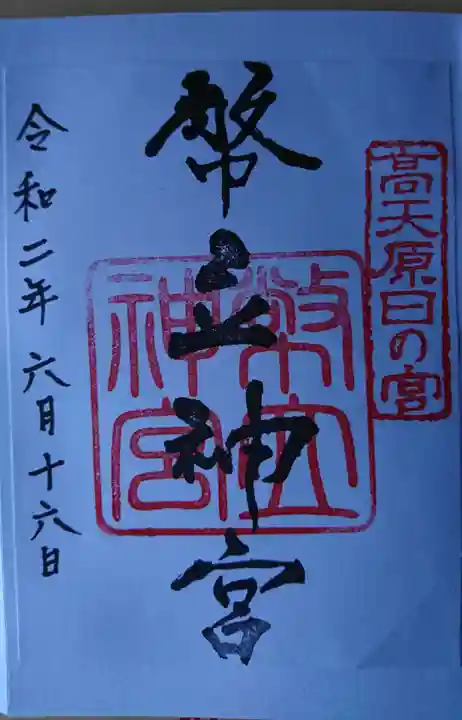 高天原日の宮
幣立神宮
幣立
神宮
令和二年六月十六日